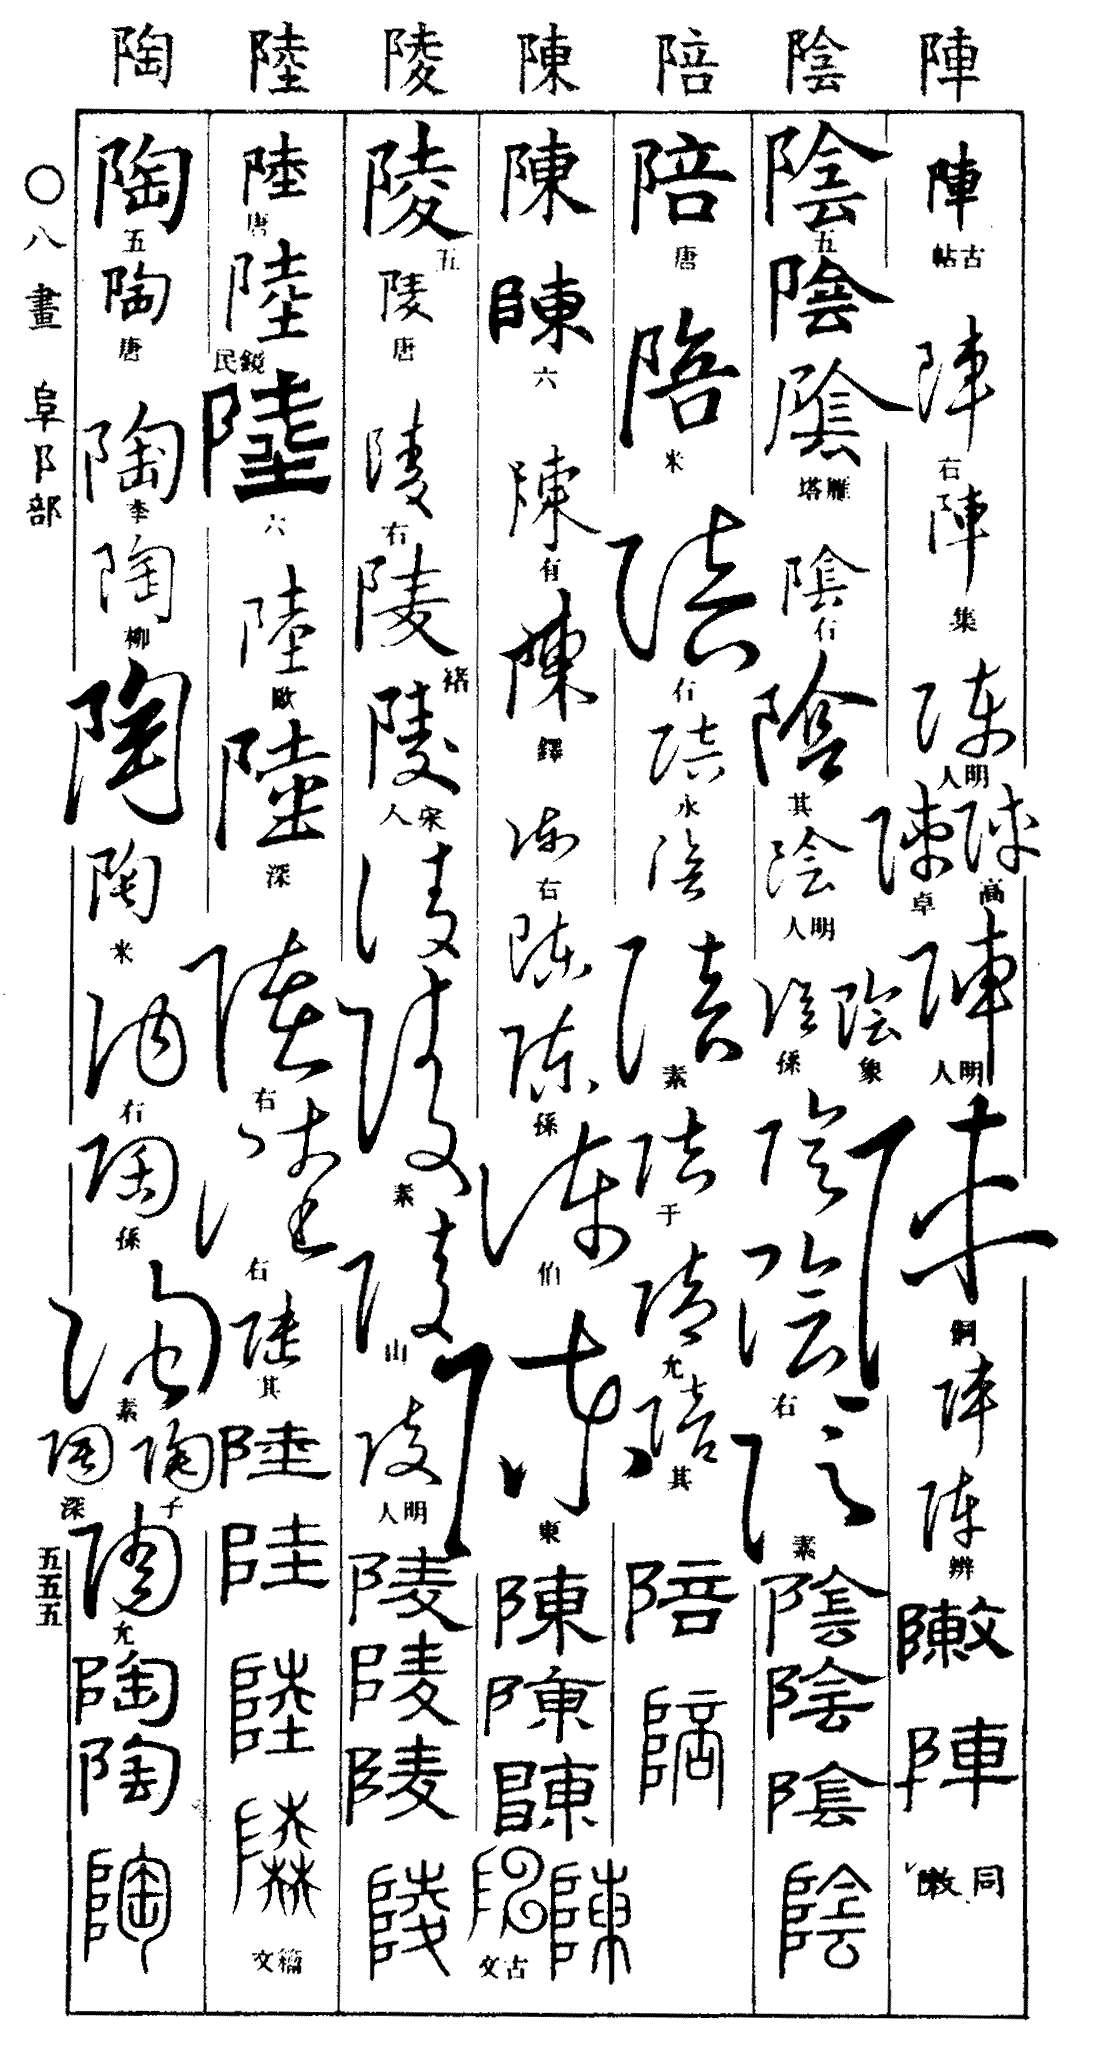 陣 陰 陪 陳 陵 陸 陶
陣 古帖 陣 右 陣 集 陣 明人 陣 高 陣 卓 陣 明人 陣 陣 陣 辨 敶 陣 同敶
陰 五 陰 陰 雁塔 陰 右 陰 其 陰 明人 陰 象 陰 孫 陰 陰 右 陰 素 陰 陰 陰 陰
陪 唐 陪 米 陪 右 陪 永 陪 陪 素 陪 于 陪 允 陪 其 陪 陪
陳 陳 六 陳 有 陳 鐸 陳 右 陳 陳 孫 陳 伯 陳 東 陳 陳 陳 陳 古文
陵 五 陵 唐 陵 右 陵 褚 陵 宋人 陵 陵 素 陵 山 陵 明人 陵 陵 陵 陵
陸 唐 陸 鏡民 陸 六 陸 歐 陸 深 陸 右 陸 右 陸 其 陸 陸 陸 陸 籀文
陶 五 陶 唐 陶 李 陶 柳 陶 陶 米 陶 右 陶 孫 陶 素 陶 子 陶 深 陶 允 陶 陶 陶
〇八畫 阜阝部
五五五